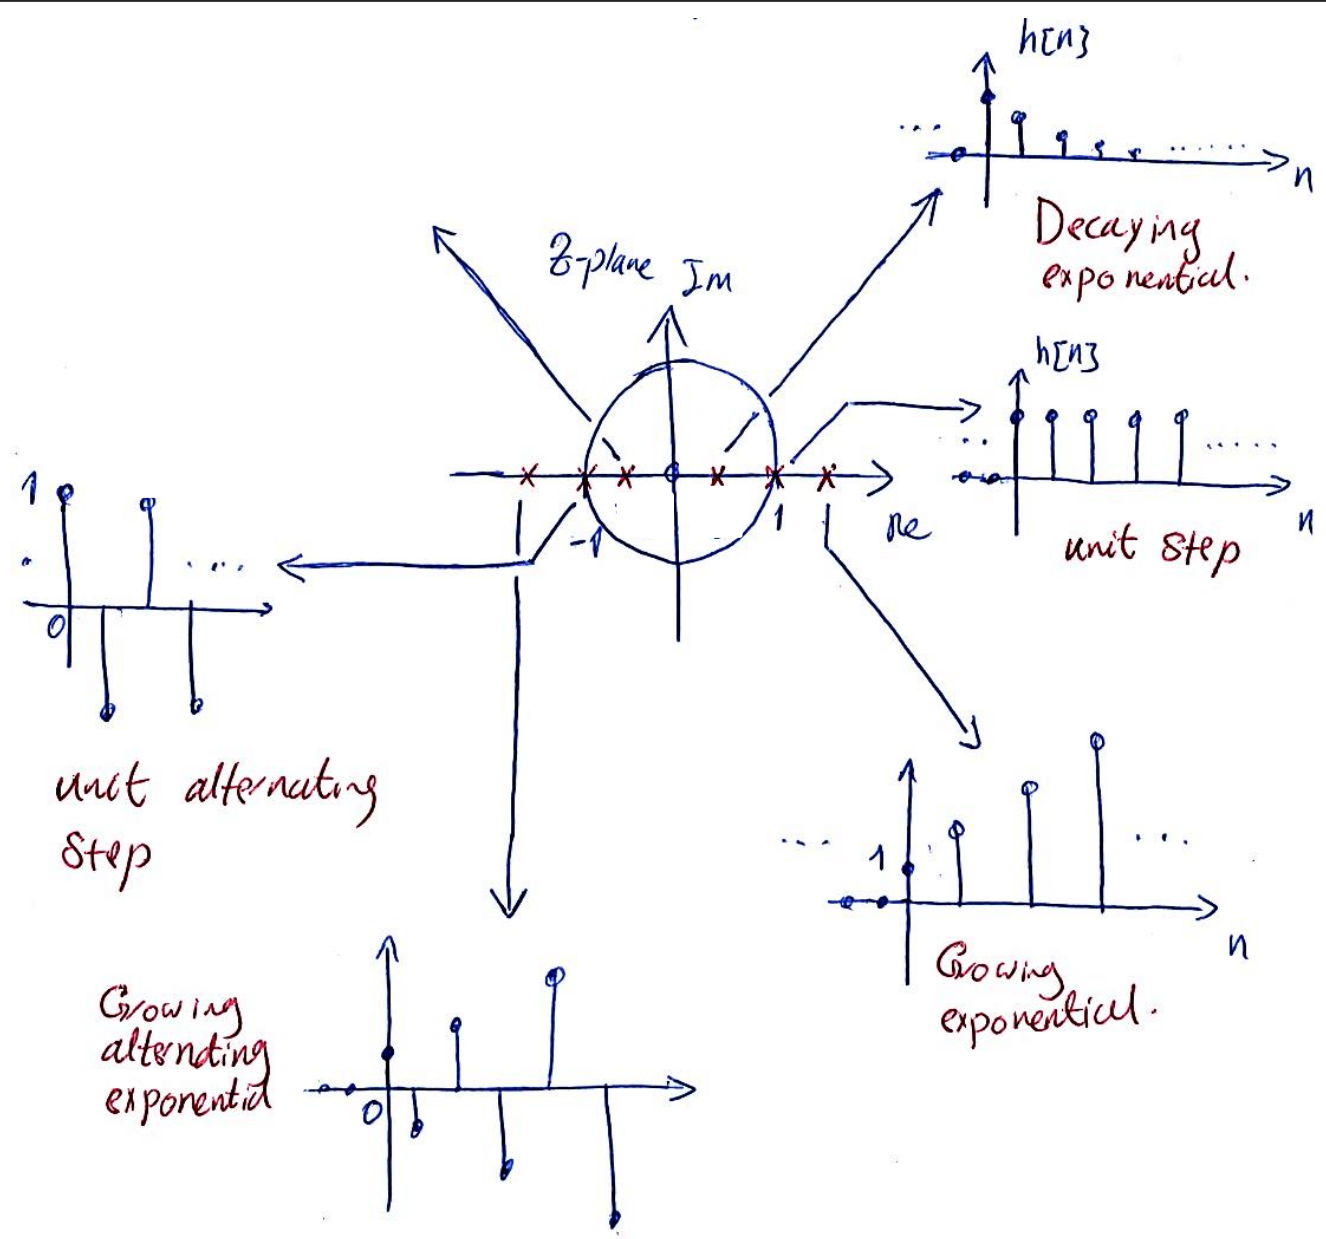 h[n]
n
Decaying
exponential.
Z-plane
Im
h[n]
n
unit step
1
-1
Re
1
0
unit alternating
step
1
n
Growing
exponential.
Growing
alternating
exponential
0